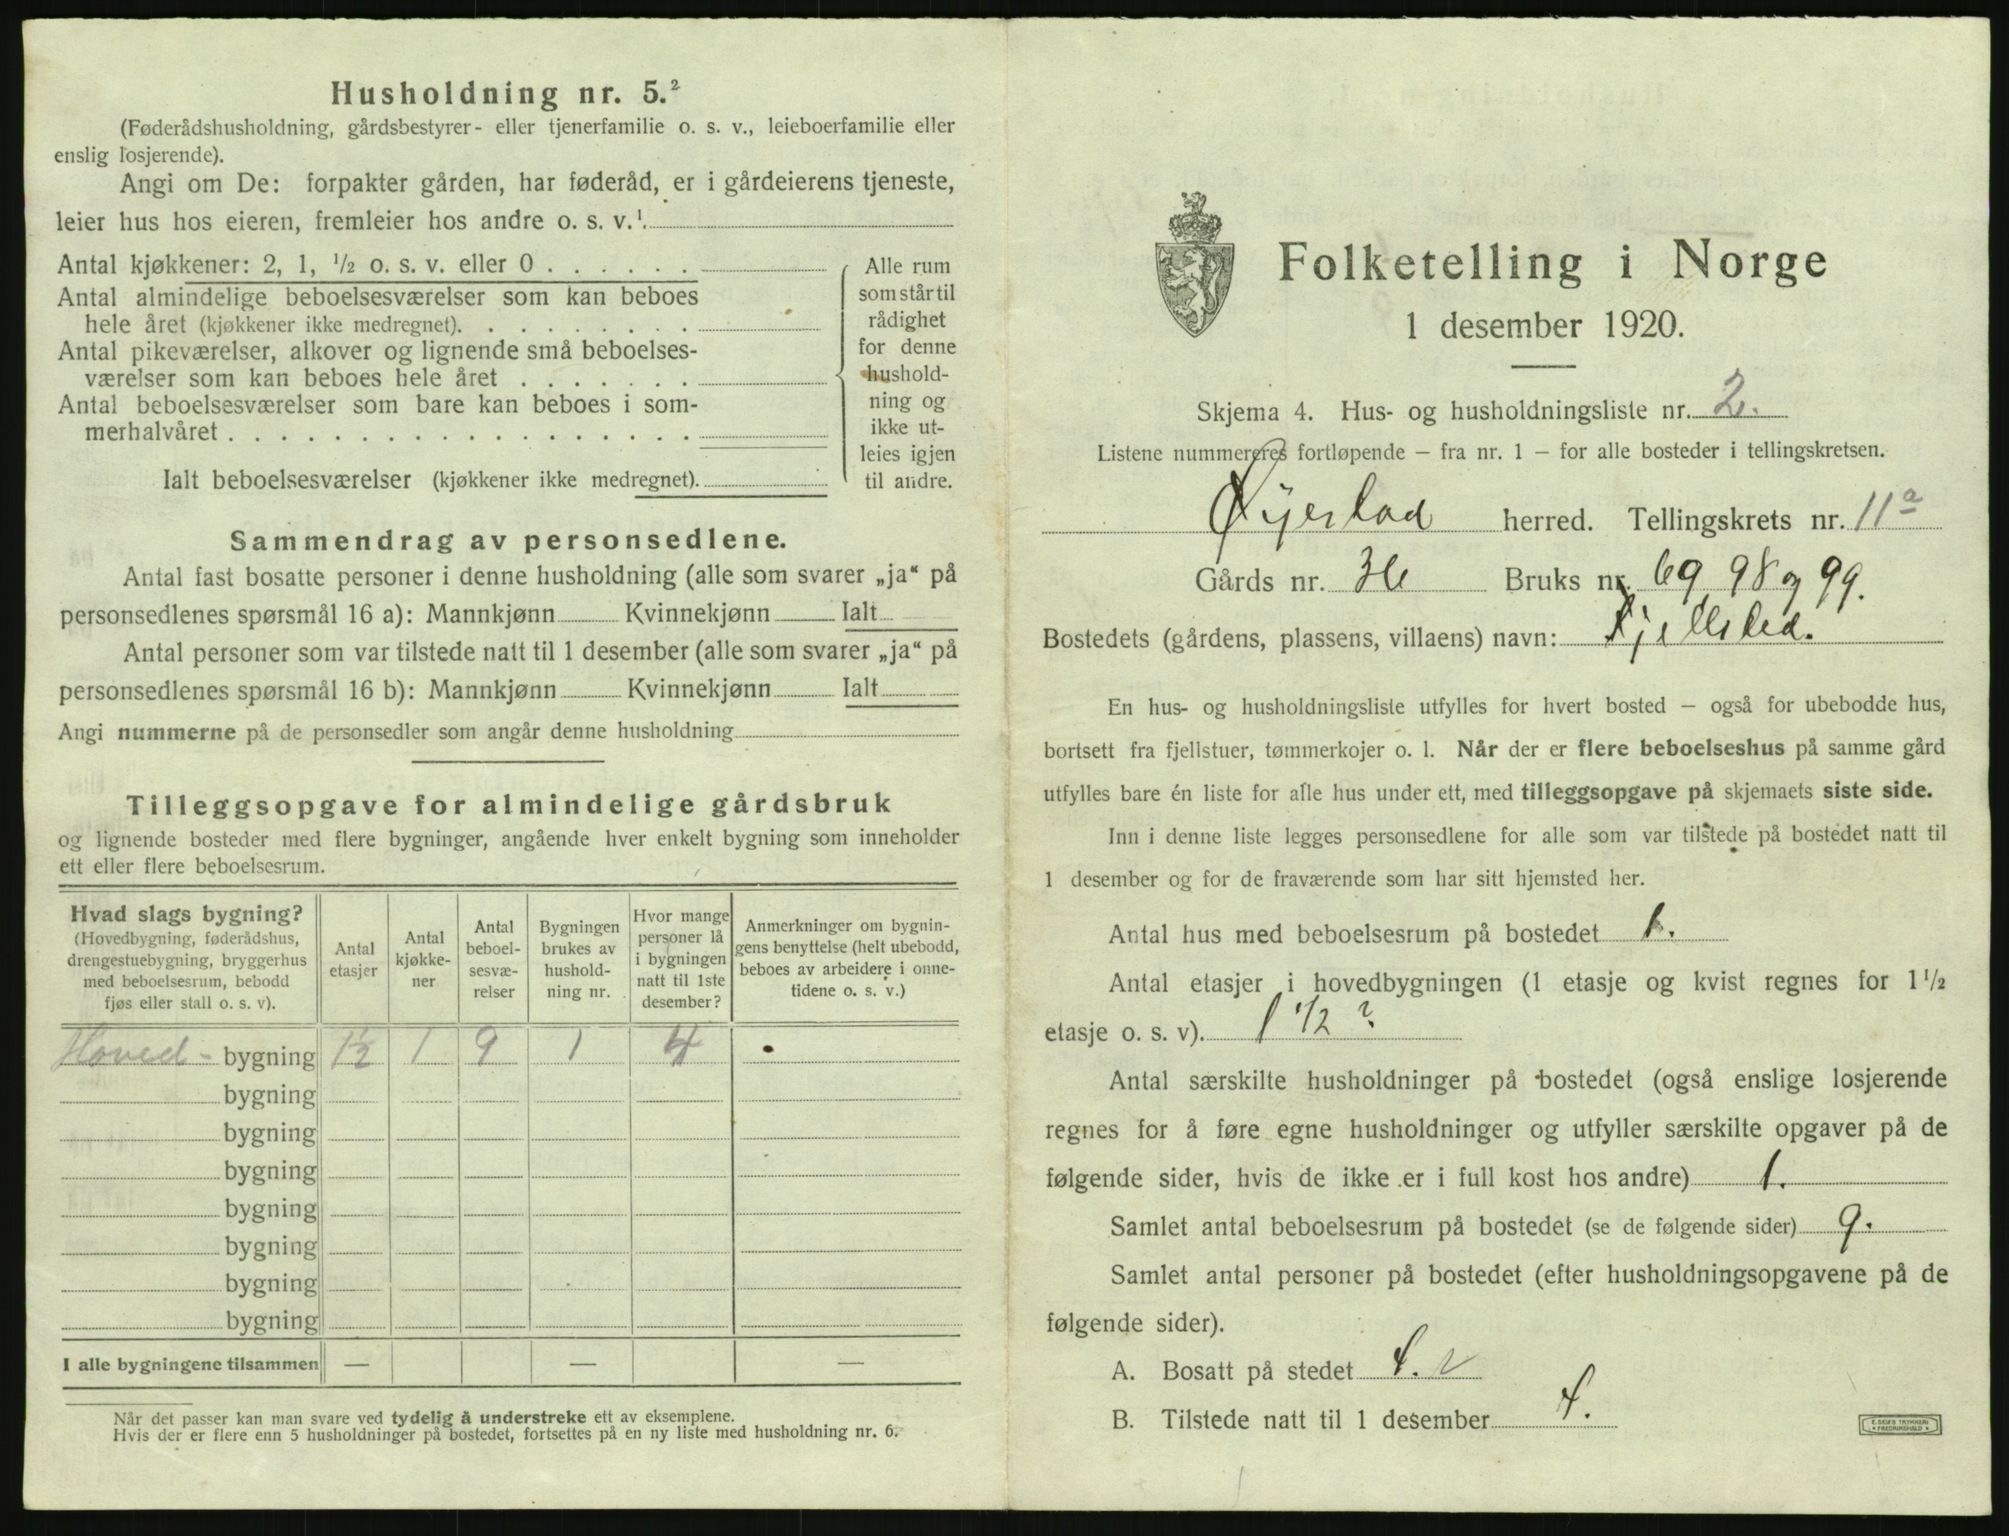 Husholdning nr. 5.²
(Føderådshusholdning, gårdsbestyrer- eller tjenerfamilie o. s. v., leieboerfamilie eller
enslig losjerende).
Angi om De: forpakter gården, har føderåd, er i gårdeierens tjeneste,
leier hus hos eieren, fremleier hos andre o. s. v.¹.
Antal kjøkkener: 2, 1, ½ o. s. v. eller 0 . . . . . .
Antal almindelige beboelsesværelser som kan beboes
hele året (kjøkkener ikke medregnet). . . . . . . . .
Antal pikeværelser, alkover og lignende små beboelses-
værelser som kan beboes hele året . . . . . . .
Antal beboelsesværelser som bare kan beboes i som-
merhalvåret . . . . . . . . . . . . . . . . . .
Ialt beboelsesværelser (kjøkkener ikke medregnet).
Alle rum
som står til
rådighet
for denne
hushold-
ning og
ikke ut-
leies igjen
til andre.
Sammendrag av personsedlene.
Antal fast bosatte personer i denne husholdning (alle som svarer „ja“ på
personsedlenes spørsmål 16 a): Mannkjønn Kvinnekjønn Ialt
Antal personer som var tilstede natt til 1 desember (alle som svarer „ja“ på
personsedlenes spørsmål 16 b): Mannkjønn Kvinnekjønn Ialt
Angi nummerne på de personsedler som angår denne husholdning
Tilleggsopgave for almindelige gårdsbruk
og lignende bosteder med flere bygninger, angående hver enkelt bygning som inneholder
ett eller flere beboelsesrum.
Hvad slags bygning?
(Hovedbygning, føderådshus,
drengestuebygning, bryggerhus
med beboelsesrum, bebodd
fjøs eller stall o. s. v).
Antal
etasjer
Antal
kjøkke-
ner
Antal
beboel-
sesvæ-
relser
Bygningen
brukes av
hushold-
ning nr.
Hvor mange
personer lå
i bygningen
natt til 1ste
desember?
Anmerkninger om bygnin-
gens benyttelse (helt ubebodd,
beboes av arbeidere i onne-
tidene o. s. v.)
Hoved- bygning 1½ 1 9 1 4
bygning
bygning
bygning
bygning
bygning
bygning
bygning
I alle bygningene tilsammen — — —
Når det passer kan man svare ved tydelig å understreke ett av eksemplene.
Hvis der er flere enn 5 husholdninger på bostedet, fortsettes på en ny liste med husholdning nr. 6.
Folketelling i Norge
1 desember 1920.
Skjema 4. Hus- og husholdningsliste nr. 2.
Listene nummereres fortløpende — fra nr. 1 — for alle bosteder i tellingskretsen.
Øyestad herred. Tellingskrets nr. 11a
Gårds nr. 36 Bruks nr. 69 98 og 99.
Bostedets (gårdens, plassens, villaens) navn: Fjellsted.
En hus- og husholdningsliste utfylles for hvert bosted — også for ubebodde hus,
bortsett fra fjellstuer, tømmerkojer o. l. Når der er flere beboelseshus på samme gård
utfylles bare én liste for alle hus under ett, med tilleggsopgave på skjemaets siste side.
Inn i denne liste legges personsedlene for alle som var tilstede på bostedet natt til
1 desember og for de fraværende som har sitt hjemsted her.
Antal hus med beboelsesrum på bostedet 1.
Antal etasjer i hovedbygningen (1 etasje og kvist regnes for 1½
etasje o. s. v). 1 1/2 ?
Antal særskilte husholdninger på bostedet (også enslige losjerende
regnes for å føre egne husholdninger og utfyller særskilte opgaver på de
følgende sider, hvis de ikke er i full kost hos andre) 1.
Samlet antal beboelsesrum på bostedet (se de følgende sider) 9.
Samlet antal personer på bostedet (efter husholdningsopgavene på de
følgende sider).
A. Bosatt på stedet 4.
B. Tilstede natt til 1 desember 4.